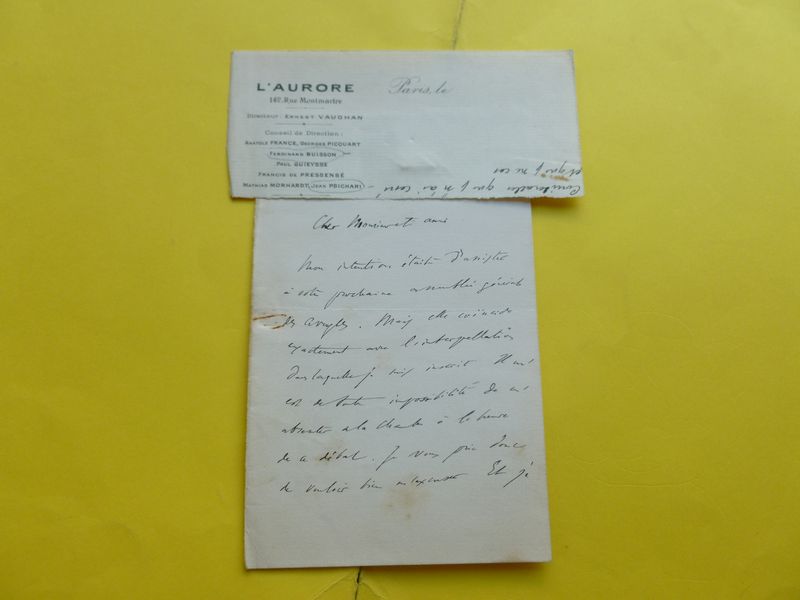 L'AURORE
142, Rue Montmartre
Directeur: ERNEST VAUGHAN
Conseil de Direction:
ANATOLE FRANCE, GEORGES PICQUART
FERDINAND BUISSON
PAUL GUIEYSSE
FRANCIS DE PRESSENSÉ
MATHIAS MORHARDT, JEAN PSICHARI
Paris, le
que je n'ai
et que je ne
Cher Monsieur et ami
Mon intention était d'assister
à votre prochaine assemblée générale
des aveugles. Mais elle coincide
exactement avec l'interpellation
dans laquelle je suis inscrit. Il m'
est de toute impossibilité de m'
absenter de la Chambre à l'heure
de ce débat. Je vous prie donc
de vouloir bien m'excuser. Et je